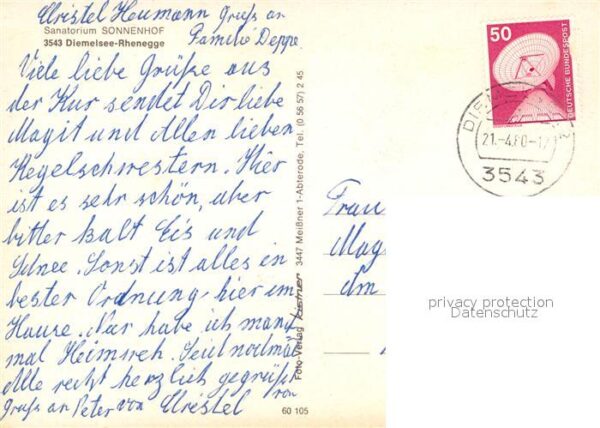 Christel Heumann Gruß an
Familie Deppe
Sanatorium SONNENHOF
3543 Diemelsee-Rhenegge
Viele liebe Grüße aus
der Kur sendet Dir liebe
Magit und Allen lieben
Kegelschwestern. Hier
ist es sehr schön, aber
bitter kalt Eis und
Schnee. Sonst ist alles in
bester Ordnung hier im
Hause. Nur habe ich manch
mal Heimweh. Seid nochmal
Alle recht herzlich gegrüßt
von
Gruß an Peter von Christel
Foto-Verlag Kastner 3447 Meißner 1-Abterode, Tel. (0 56 57) 2 45
60 105
50
DEUTSCHE BUNDESPOST
21.-4.80-17
3543
Frau
Mag
Am
privacy protection
Datenschutz